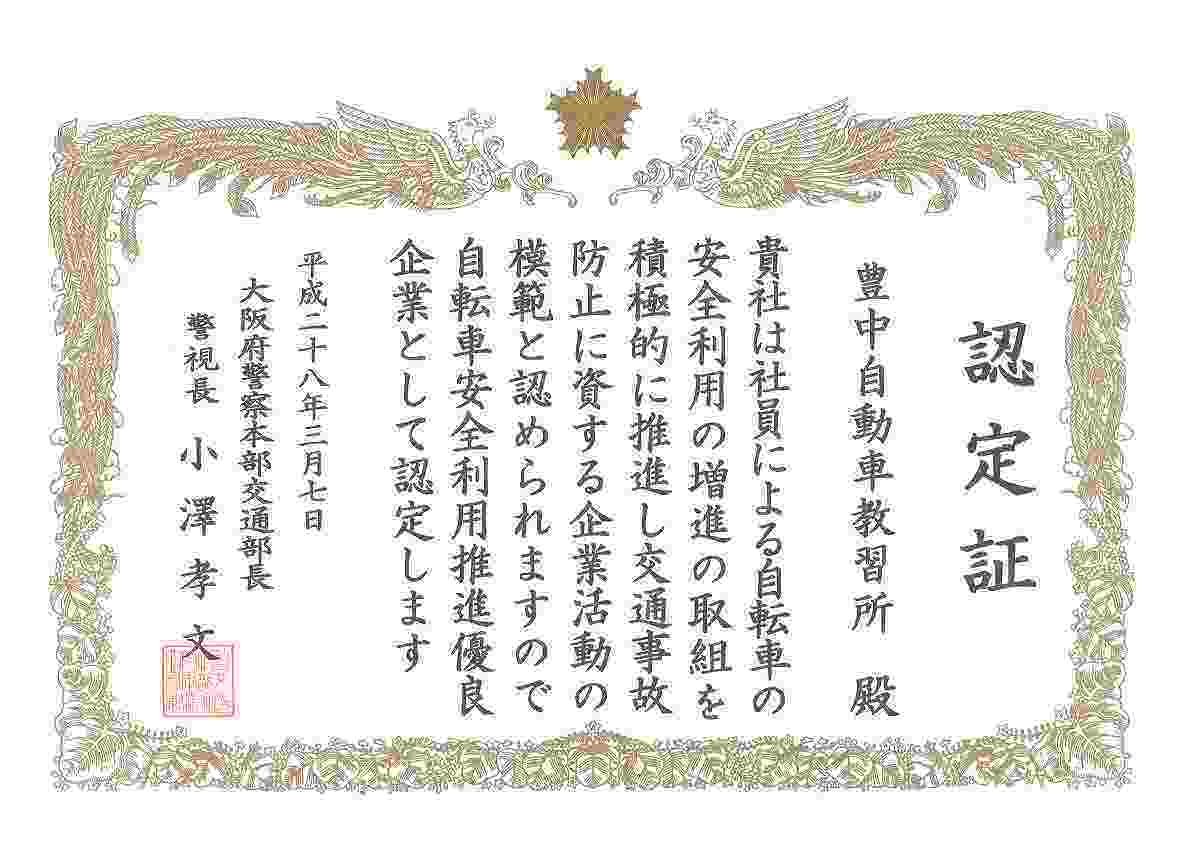 認定証
豊中自動車教習所 殿
貴社は社員による自転車の
安全利用の増進の取組を
積極的に推進し交通事故
防止に資する企業活動の
模範と認められますので
自転車安全利用推進優良
企業として認定します
平成二十八年三月七日
大阪府警察本部交通部長
警視長 小澤孝文